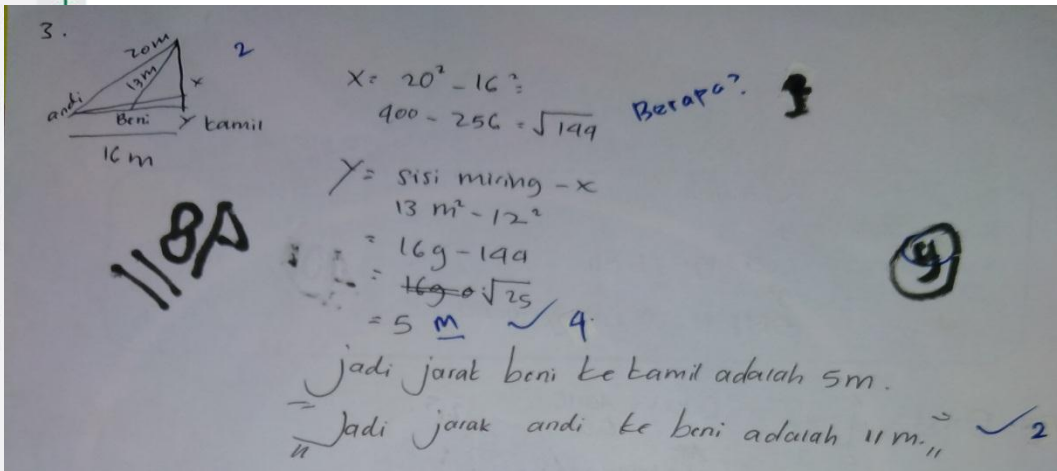 3.
20m
2
13m
x
andi
Beni
y
kamil
16 m
x = 20² - 16² =
400 - 256 = √144
Berapa?
1
y = sisi miring - x
13 m² - 12²
= 169 - 144
= √25
= 5 m ✓ 4.
jadi jarak beni ke kamil adalah 5m.
= Jadi jarak andi ke beni adalah 11 m.,, ✓ 2
118A
9